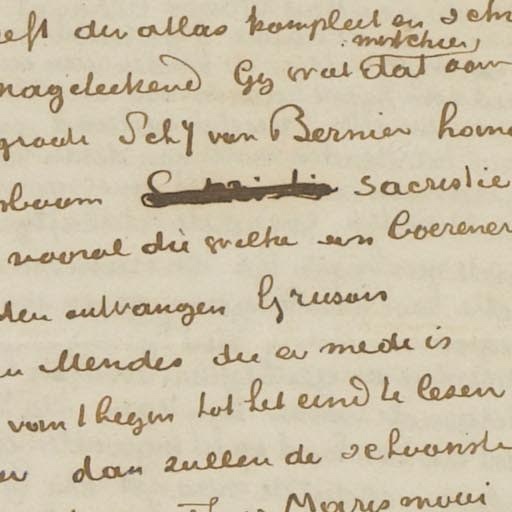 eft die atlas kompleet en schr
misschien
nageteekend Gij wat dat aan
groote Schij van Bernier home
boom sacristie
vooral die welke een boerener
den ontvangen Gruson
Mendes die er mede is
van t begin tot het eind te lezen
dan zullen de schoonste
Maris mooi